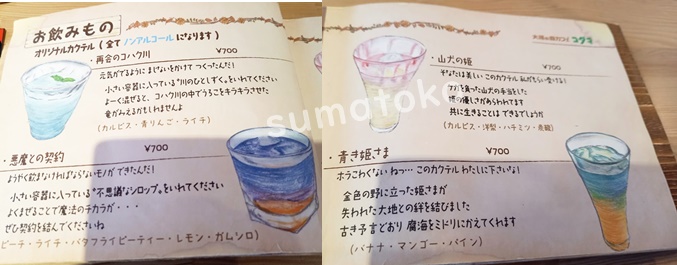 お飲みもの
オリジナルカクテル(全てノンアルコールになります)
・再会のコハク川 ¥700
元気がでるように まじないをかけて つくったんだ!
小さい容器に入っている"川のひとしずく"をいれてください
よーく混ぜると、コハク川の中でうろこをキラキラさせた
竜がみえるかもしれませんよ
(カルピス・青りんご・ライチ)
・悪魔との契約 ¥700
ようやく飲まなければならないモノが できたんだ!
小さい容器に入っている"不思議なシロップ"をいれてください
よくまぜることで魔法のチカラが・・・
ぜひ契約を結んでくださいね
ピーチ・ライチ・バタフライピーティー・レモン・ガムシロ)
・山犬の姫 ¥700
そなたは美しい このカクテル
を負った山犬の手当をした
の優しさがあらわれてます
共に生きることは できるでしょうか
(カルピス・洋梨・ハチミツ・
・青き姫さま ¥700
ホラこわくない ねっ… このカクテル わたしに下さいな!
金色の野に立った姫さまが
失われた大地との絆を結びました
古き予言どおり 腐海をミドリにかえてくれます
(バナナ・マンゴー・パイン)
sumatoke